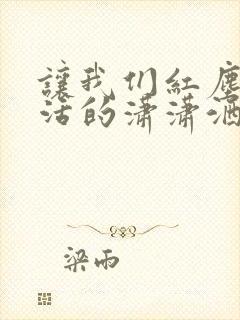 讓我们紅塵
活的潇潇洒
梁雨